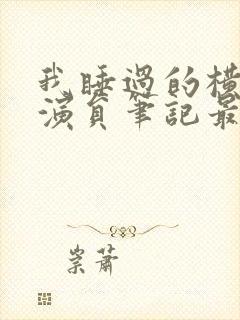 我睡過的橫
演員筆記最
崇蕭